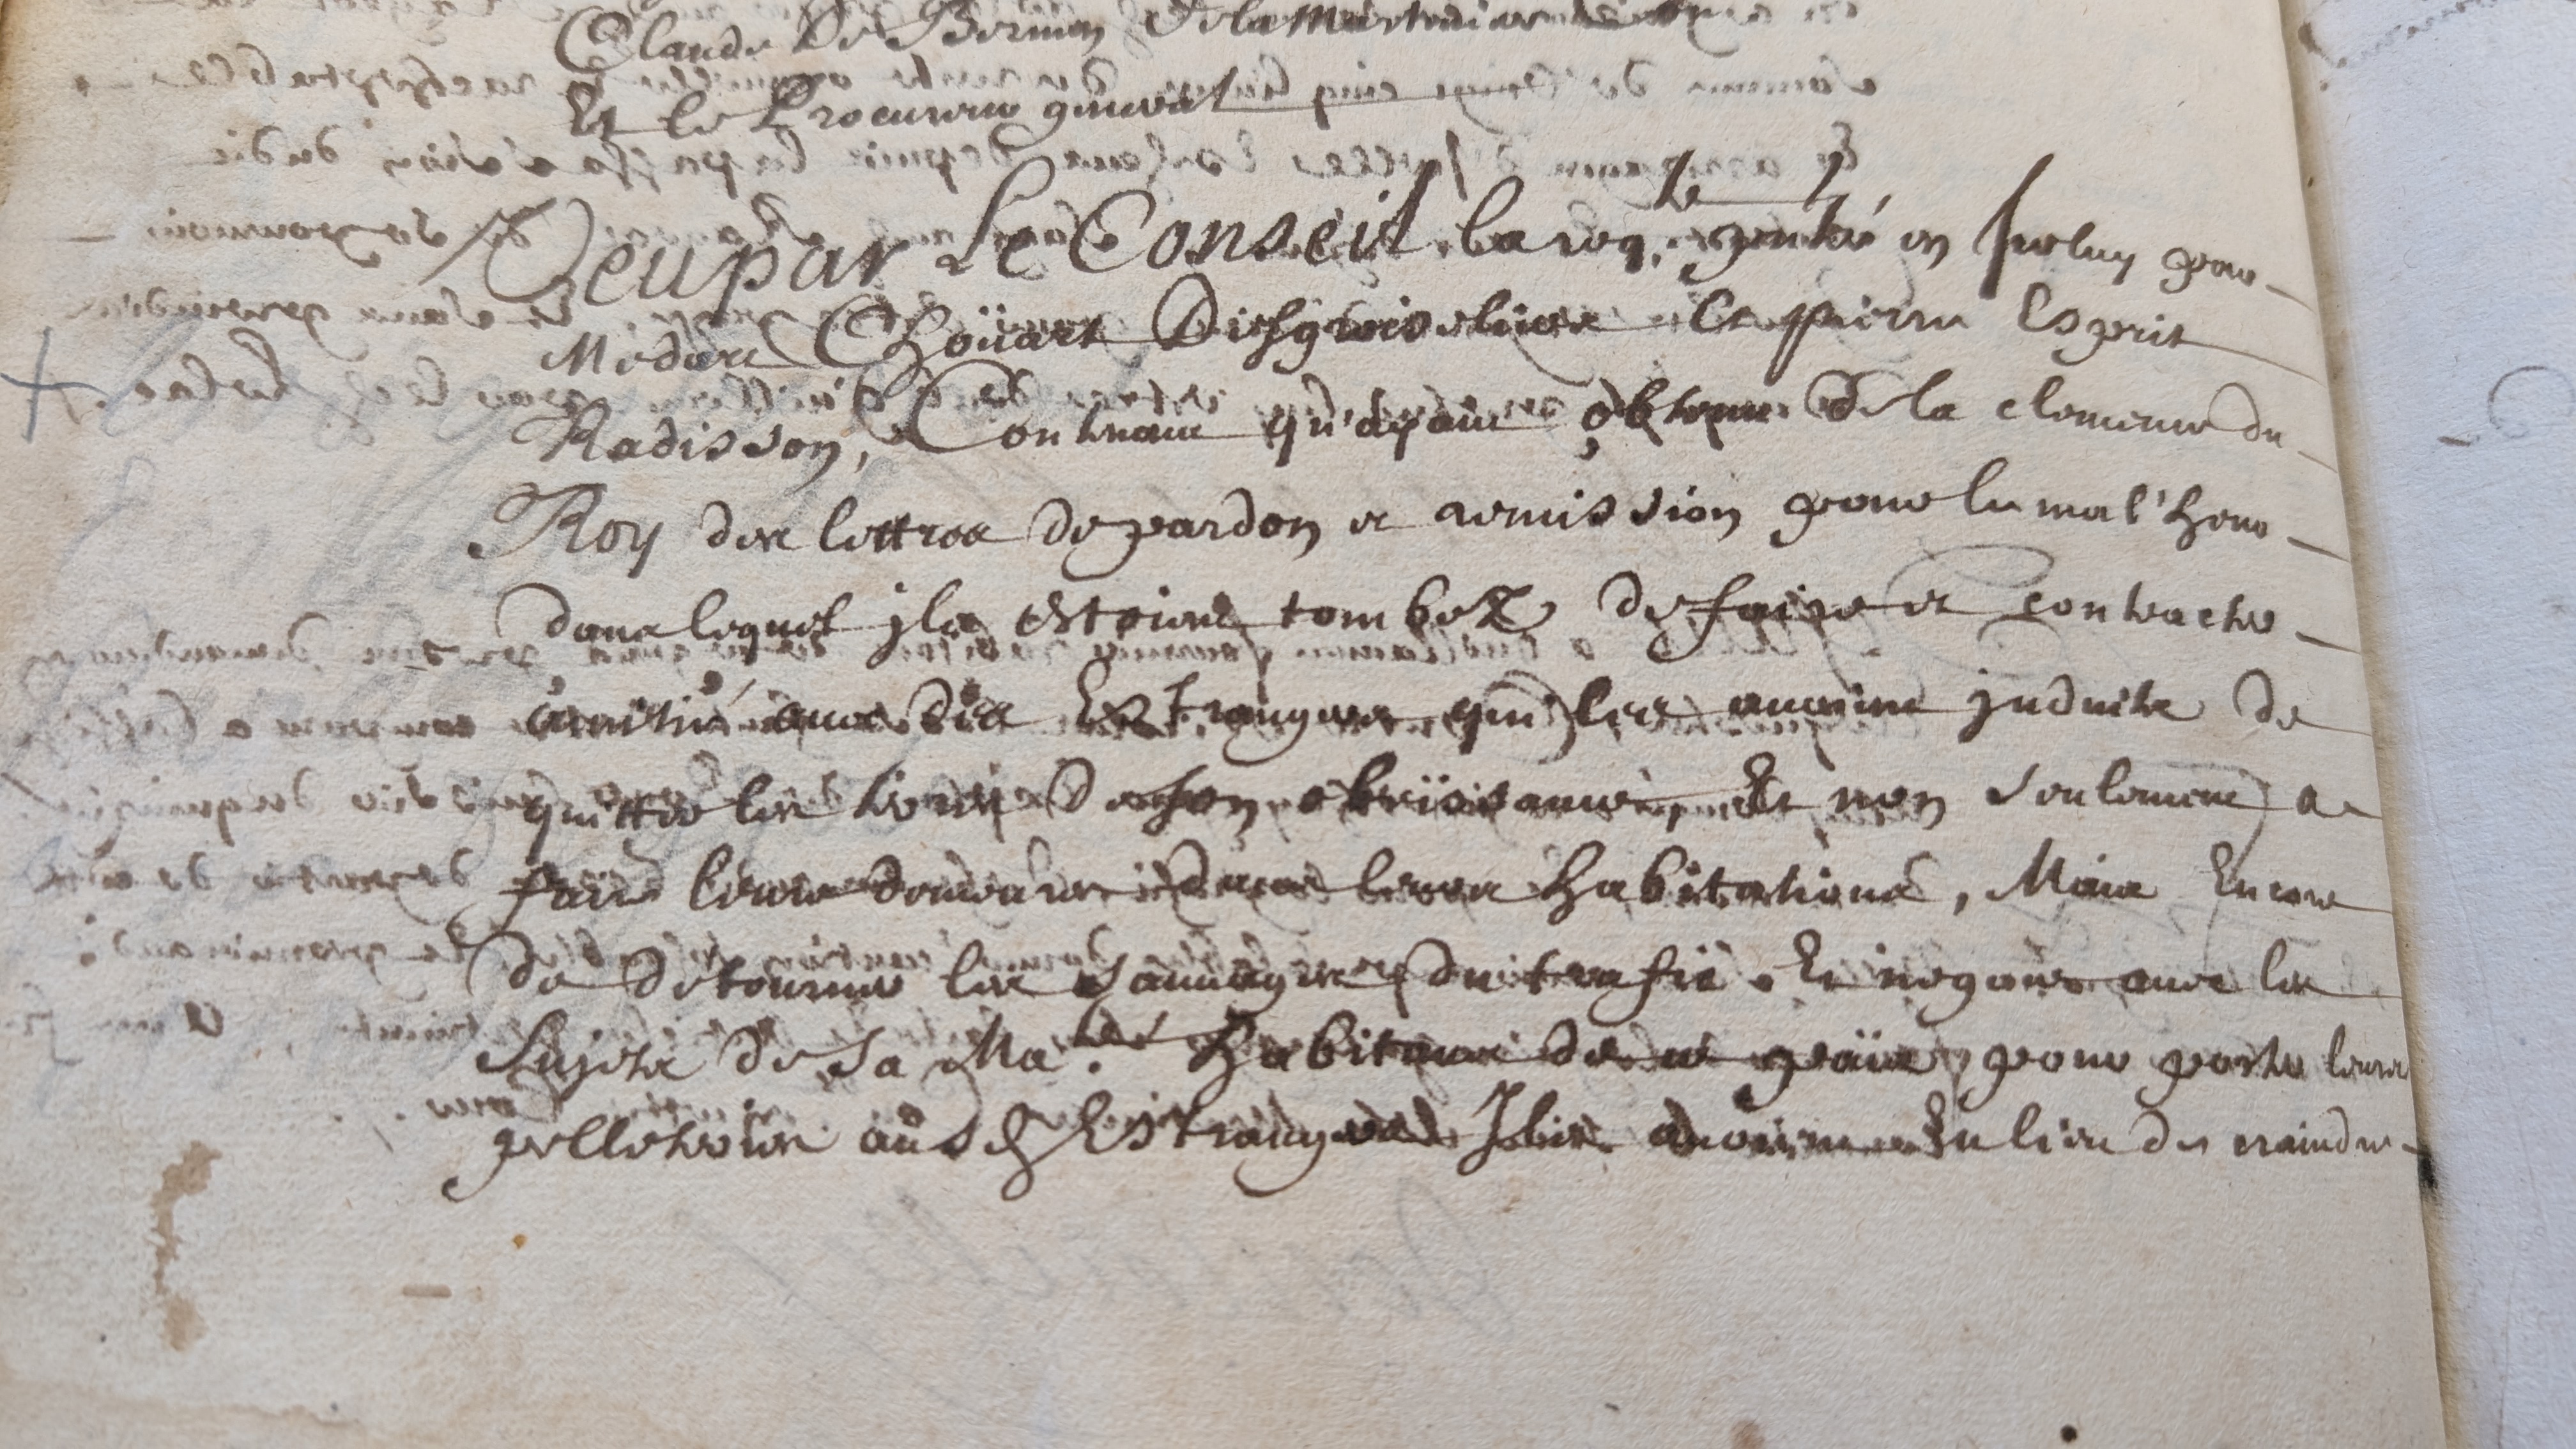 Claude De Bermen De la Martiniere
Et le Procureur general
Veu par Le Conseil la req.te p̄ntée en Iceluy par
Medart Choüart Desgroiseliers Et pierre Esprit
Radisson, Contenant qu'ayant obtenu de la clemence du
Roy des lettres de pardon et remission pour le mal'heur
dans lequel jls estoient tombez de faire et contracter
amitié auec des Estrangers qui les auoient induits de
quitter les terres de son obeïssance, Et non seulement a
faire leurs demeures dans leurs habitations, Mais Encore
de détourner les Sauuages du trafic Et negoce auec les
Sujets de Sa Ma.té habitans de ce païs, pour porter leurs
pelleteries ausd. Estrangers Jls auoient lieu de craindre